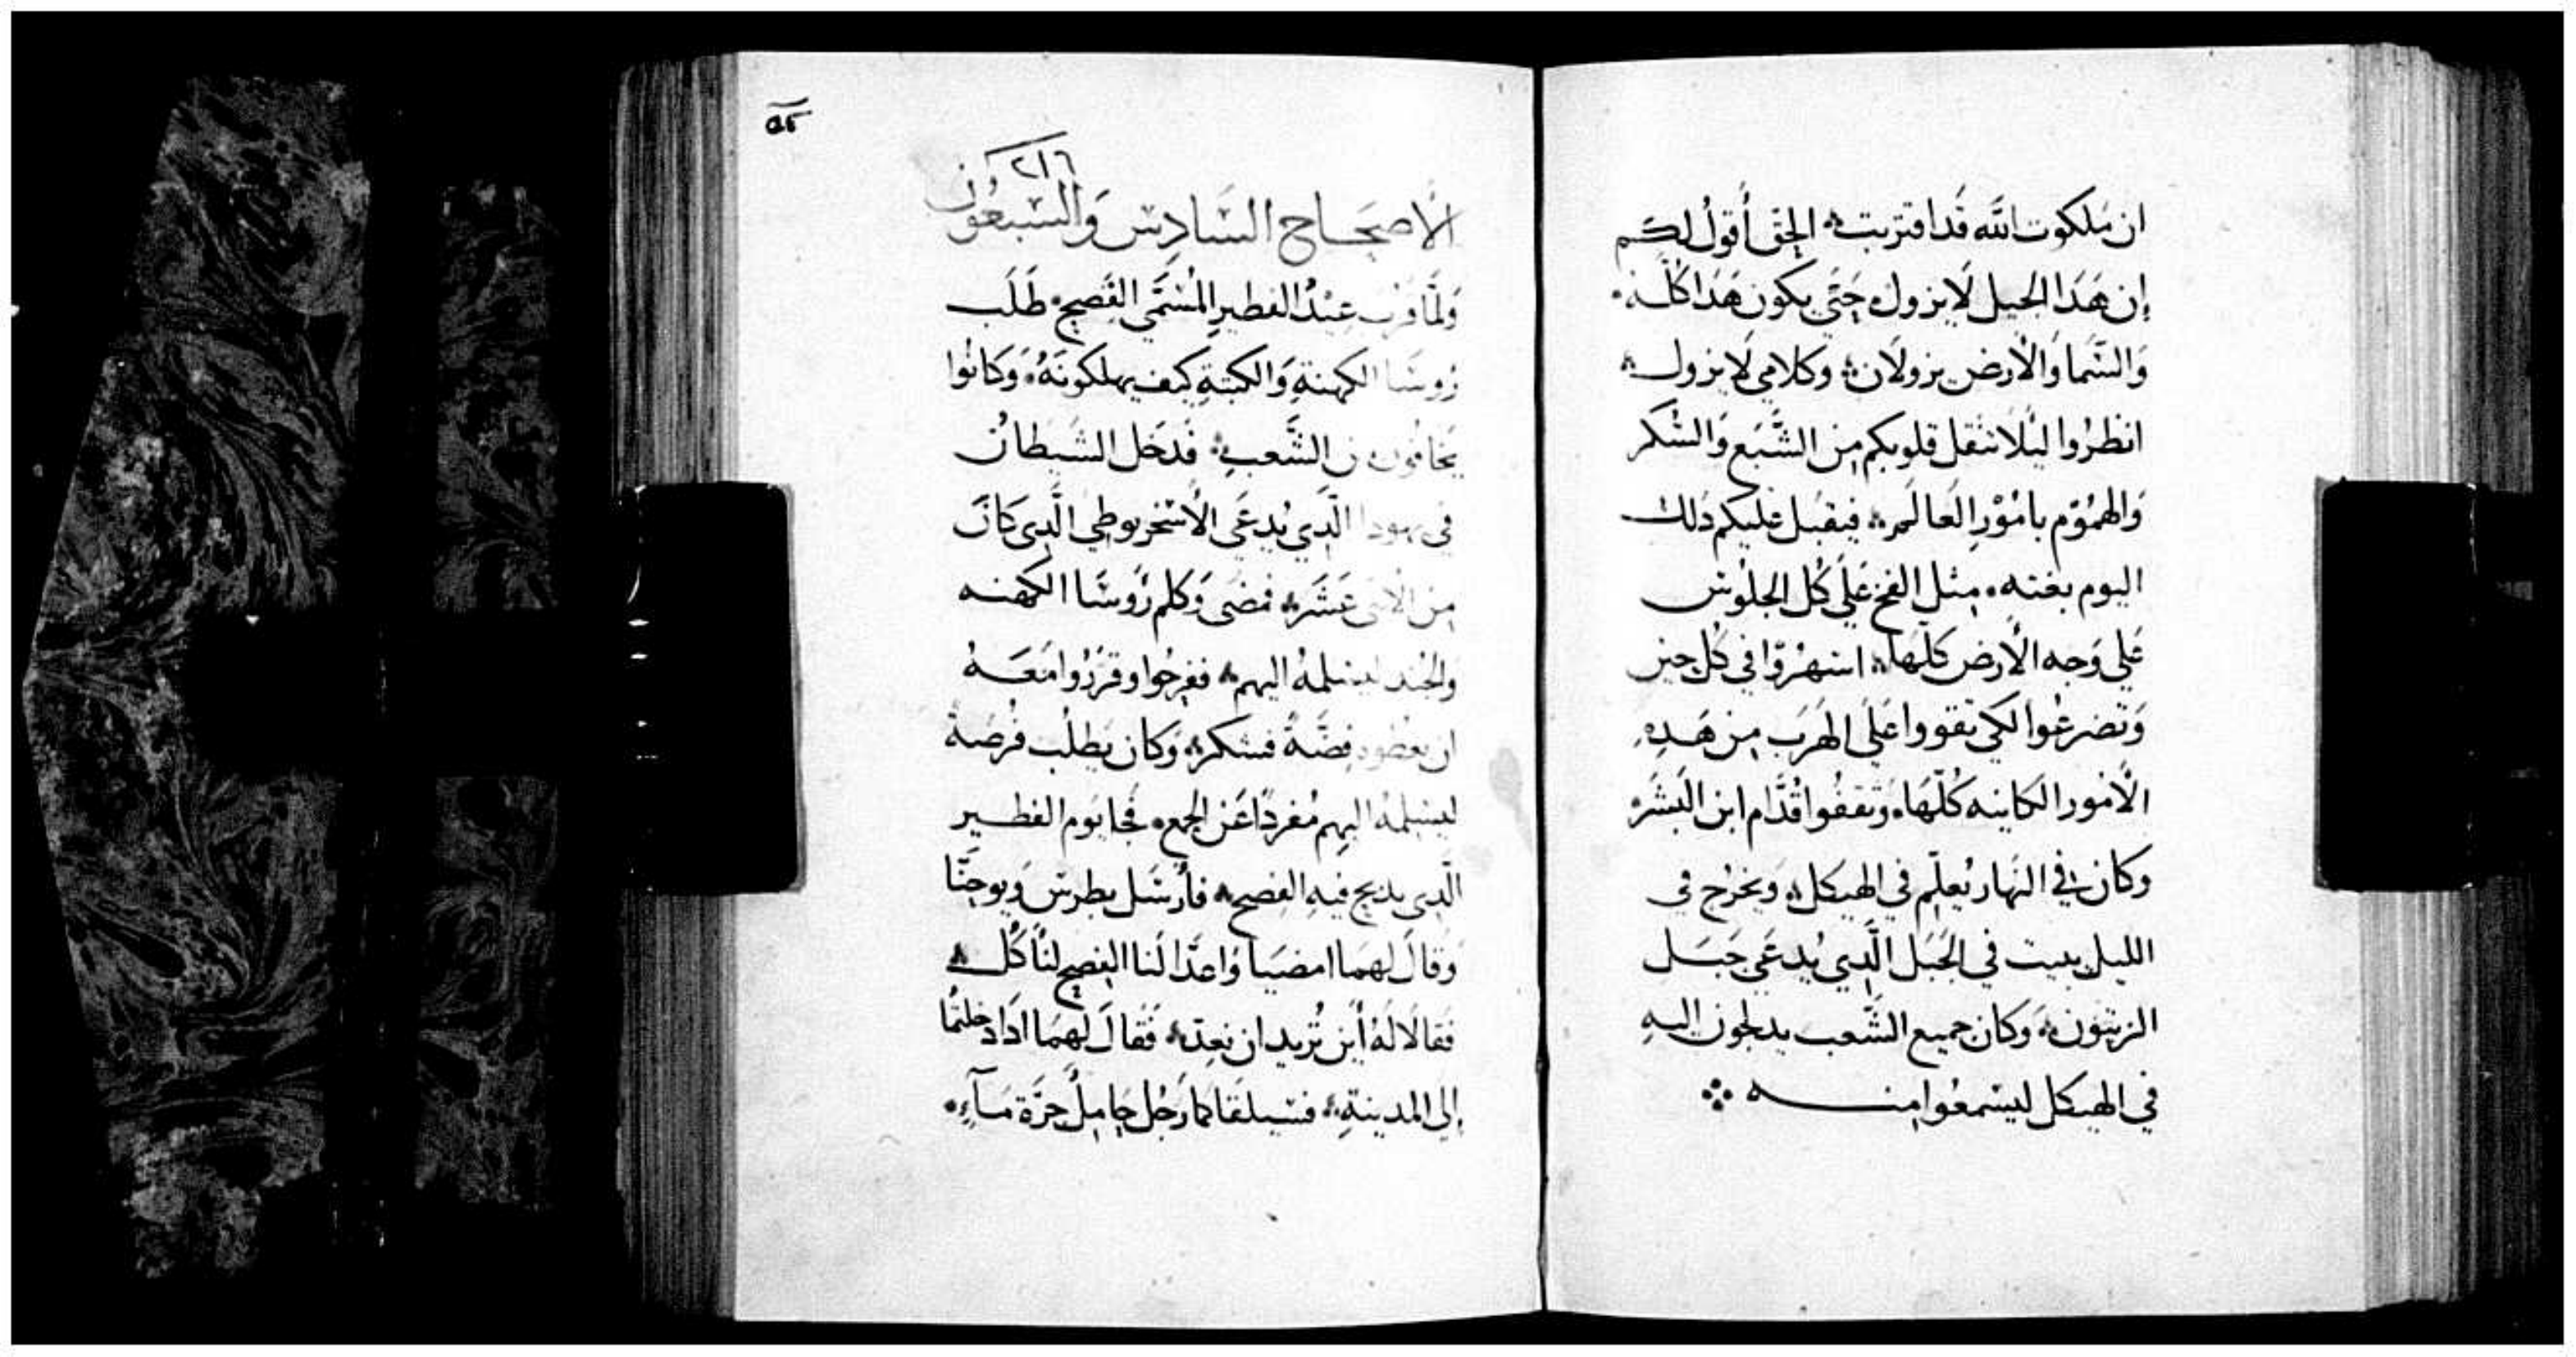 ان مَلكوت الله قَد اقتربت الحِق أقولُ لكم
إن هَدَا الجيل لَا يزول حَتَّي يكون هَدَا كُلّه
وَالسَّما وَالأرض يزولَان وكلامي لَا يزول
انظرُوا ليَلا تثقل قلوبكم مِن الشَّبَع وَالسُّكر
وَالهمُوم بامُوْرِ العَالَمِ فيقبل عَليكم دلك
اليوم بغته مِثل الفخ عَلَي كُل الجلُوس
عَلي وَجه الأرض كلهَا اسهرُوّا في كُل حين
وَتضرعُوا لكي تقووا عَلَي الهَرَب مِن هَدِهِ
الأمُور الكاينه كُلّهَا وَتقفُوا قُدَّام ابن البَشَر
وكان في النَهار يُعلِّم في الهيكل وَيخرُج في
الليل يبيت في الجَبَل الَّدِي يُدعَي جَبَل
الزيتون وَكان جميع الشَّعب يدلجون اليهِ
في الهيكل ليسْمعُوا منه
٥٢
٢١٦
الأصحَاح السَّادِس وَالسَّبعُون
وَلمَّا قرب عِيْدُ الفطيرِ المُسَمَّي الفَصِح طَلَب
رُوسَا الكهنةِ وَالكتبةِ كيف يهلكونَهُ وَكَانُوا
يَخَافُون من الشَّعبِ فَدَخَل الشَيطان
في يهودا الَّدِي يُدعَي الأسْخريوطي الَّدِى كَانَ
مِن الاثنى عَشَر فمضَى وَكلم رُوسَا الكهنه
وَالجُند ليسَلمهُ اليهم ففرحُوا وقرّرُوا مَعَهُ
ان يعطوه فِضَّةً فشكر وَكان يَطلُب فُرصَةً
ليسَلِمهُ اليهِم مُفردًا عَن الجمع فجا يَوم الفطير
الَّدِى يدبح فيهِ الفِصح فأرْسَل بطرس وَيوحَنَّا
وَقالَ لهما امضيَا وَاعدَّا لَنا الفِصح لنأكُل
فَقالَا لهُ أيْن تُريد ان نعِدّ فَقالَ لهمَا ادَا دخلتُما
إلى المدينةِ فسَيلقَاكما رَجُل حَامِلُ جرَّة مَآءٍ